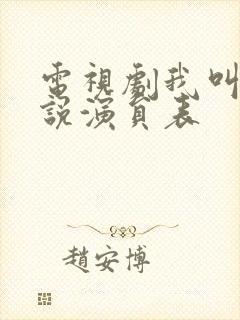 電視劇我叫
說演員表
趙安博